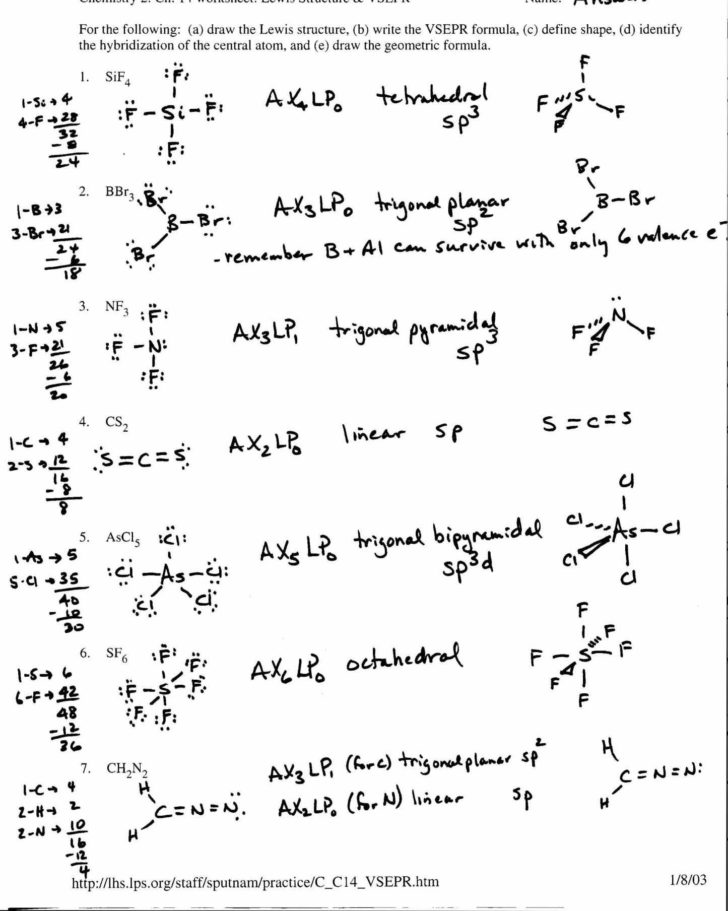 For the following: (a) draw the Lewis structure, (b) write the VSEPR formula, (c) define shape, (d) identify
the hybridization of the central atom, and (e) draw the geometric formula.
1. SiF4
1-Si → 4
4-F → 28
32
- 8
24
F
F - Si - F
F
AX4LP0 tetrahedral
sp3
F
F Si F
F
2. BBr3
1-B → 3
3-Br → 21
24
- 6
18
Br
B - Br
Br
AX3LP0 trigonal planar
sp2
- remember B + Al can survive with only 6 valence e-
Br
B - Br
Br
3. NF3
1-N → 5
3-F → 21
26
- 6
20
F
F - N
F
AX3LP1 trigonal pyramidal
sp3
N
F F
F
4. CS2
1-C → 4
2-S → 12
16
- 8
8
S = C = S
AX2LP0 linear sp
S = C = S
5. AsCl5
1-As → 5
5-Cl → 35
40
- 10
30
Cl
Cl - As - Cl
Cl Cl
AX5LP0 trigonal bipyramidal
sp3d
Cl
Cl As - Cl
Cl
Cl
6. SF6
1-S → 6
6-F → 42
48
- 12
36
F F
F - S - F
F F
AX6LP0 octahedral
F
F
F - S - F
F
F
7. CH2N2
1-C → 4
2-H → 2
2-N → 10
16
- 12
4
H
C = N = N
H
AX3LP1 (for C) trigonal planar sp2
AX2LP0 (for N) linear sp
H
C = N = N:
H
http://lhs.lps.org/staff/sputnam/practice/C_C14_VSEPR.htm 1/8/03